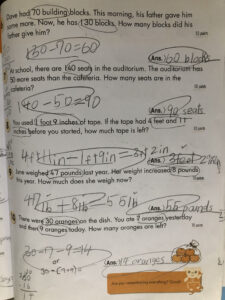 Dave had 70 building blocks. This morning, his father gave him
some more. Now, he has 130 blocks. How many blocks did his
father give him?
10 points
130-70=60
Ans. 60 blocks
At school, there are 140 seats in the auditorium. The auditorium has
50 more seats than the cafeteria. How many seats are in the
cafeteria?
10 points
140-50=90
Ans. 90 seats
You used 1 foot 9 inches of tape. If the tape had 4 feet and 11
inches before you started, how much tape is left?
10 points
4ft11in-1ft9in=3ft2in
Ans. 3feet
June weighed 47 pounds last year. Her weight increased 8 pounds
this year. How much does she weigh now?
10 points
47lb+8lb=55lb
Ans. 55 pounds
There were 30 oranges on the dish. You ate 7 oranges yesterday
and then 9 oranges today. How many oranges are left?
30-7-9=14
or
30-(7+9)=
Ans. 14 oranges
Are you remembering everything? Good!